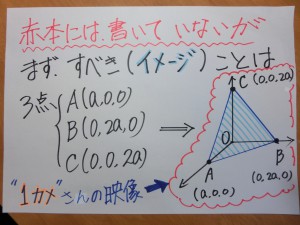 赤本には書いていないが
まず すべき(イメージ)ことは
3点 A(a,0,0)
B(0,2a,0)
C(0,0,2a)
⇒
C(0,0,2a)
O
A
(a,0,0)
B
(0,2a,0)
"1カメ"さんの映像